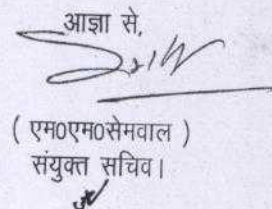 आज्ञा से,
( एम0एम0सेमवाल )
संयुक्त सचिव।